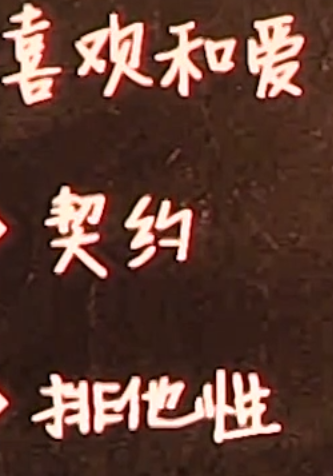 喜欢和爱
契约
排他性